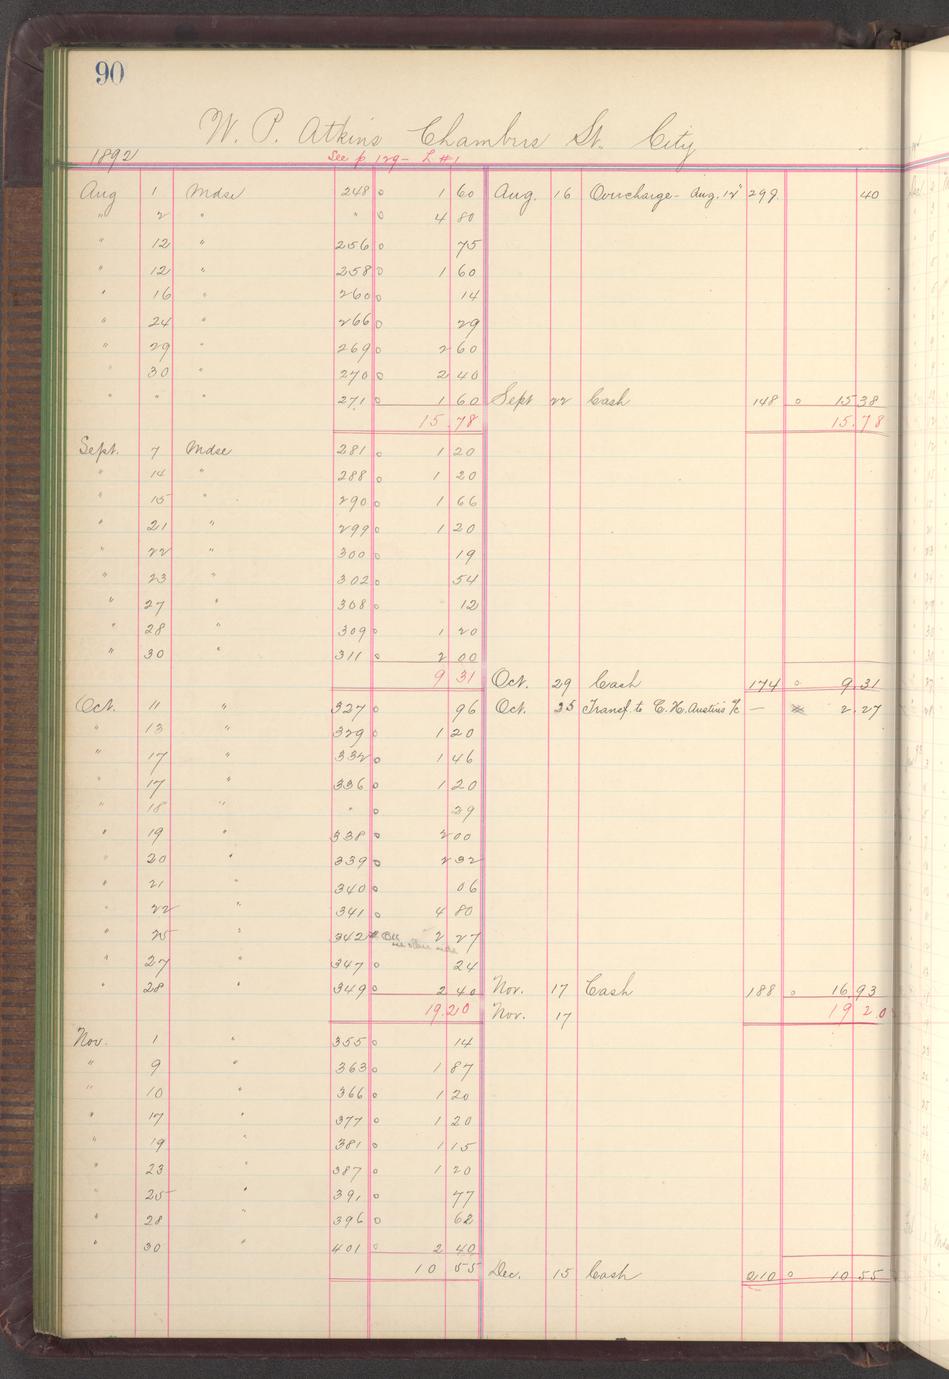 90
W. P. Atkins Chambus St. City
1892 See p 129 - L #1
Aug 1 Mdse 248 o 1 60 Aug. 16 Overcharge - Aug. 12" 299 40
" 2 " " o 4 80
" 12 " 256 o 75
" 12 " 258 o 1 60
" 16 " 260 o 14
" 24 " 266 o 29
" 29 " 269 o 2 60
" 30 " 270 o 2 40
" " " 271 o 1 60 Sept 22 Cash 148 o 15 38
15.78 15.78
Sept. 7 Mdse 281 o 1 20
" 14 " 288 o 1 20
" 15 " 290 o 1 66
" 21 " 299 o 1 20
" 22 " 300 o 19
" 23 " 302 o 54
" 27 " 308 o 12
" 28 " 309 o 1 20
" 30 " 311 o 2 00
9 31 Oct. 29 Cash 174 o 9.31
Oct. 11 " 327 o 96 Oct. 25 Transf. to C. H. Austin's a/c — 2.27
" 13 " 329 o 1 20
" 17 " 332 o 1 46
" 17 " 336 o 1 20
" 18 " " o 29
" 19 " 338 o 2 00
" 20 " 339 o 2 32
" 21 " 340 o 06
" 22 " 341 o 4 80
" 25 " 342 2 27
" 27 " 347 o 24
" 28 " 349 o 2 40 Nov. 17 Cash 188 o 16.93
19.20 Nov. 17 19 20
Nov. 1 " 355 o 14
" 9 " 363 o 1 87
" 10 " 366 o 1 20
" 17 " 377 o 1 20
" 19 " 381 o 1 15
" 23 " 387 o 1 20
" 25 " 391 o 77
" 28 " 396 o 62
" 30 " 401 o 2 40
10 55 Dec. 15 Cash 210 o 10 55